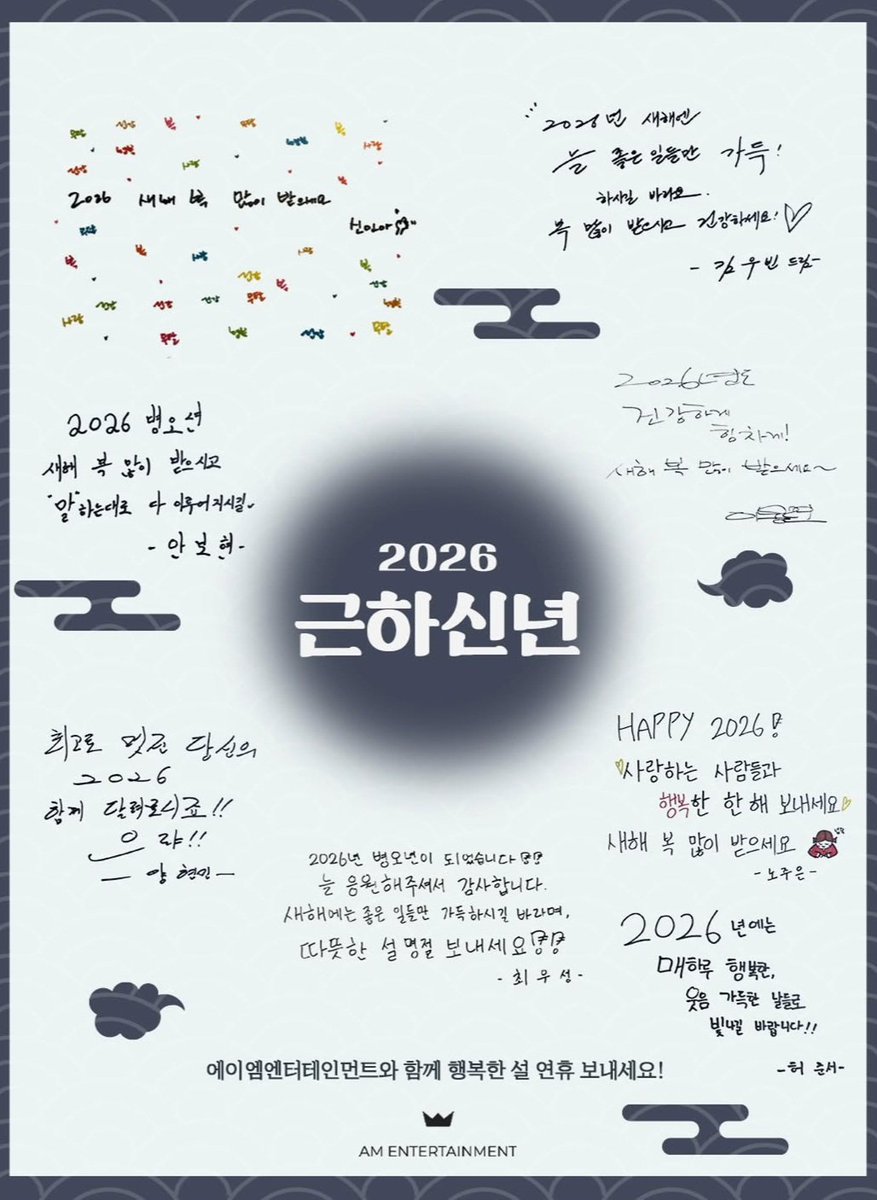 2026 새해 복 많이 받으세요
신민아
2026년 새해엔
늘 좋은 일들만 가득!
하시길 바라요.
복 많이 받으시고 건강하세요!
- 김우빈 드림 -
2026 병오년
새해 복 많이 받으시고
"말"하는대로 다 이루어지시길
- 안보현 -
2026년도
건강하게
힘차게!
새해 복 많이 받으세요~
2026
근하신년
최고로 멋진 당신의
2026
함께 달려보시죠!!
으랴!!
- 양현민 -
HAPPY 2026!
사랑하는 사람들과
행복한 한 해 보내세요
새해 복 많이 받으세요
- 노주은 -
2026년 병오년이 되었습니다
늘 응원해주셔서 감사합니다.
새해에는 좋은 일들만 가득하시길 바라며,
따뜻한 설 명절 보내세요
- 최우성 -
2026년에는
매하루 행복한,
웃음 가득한 날들로
빛나길 바랍니다!!
- 허준서 -
에이엠엔터테인먼트와 함께 행복한 설 연휴 보내세요!
AM ENTERTAINMENT